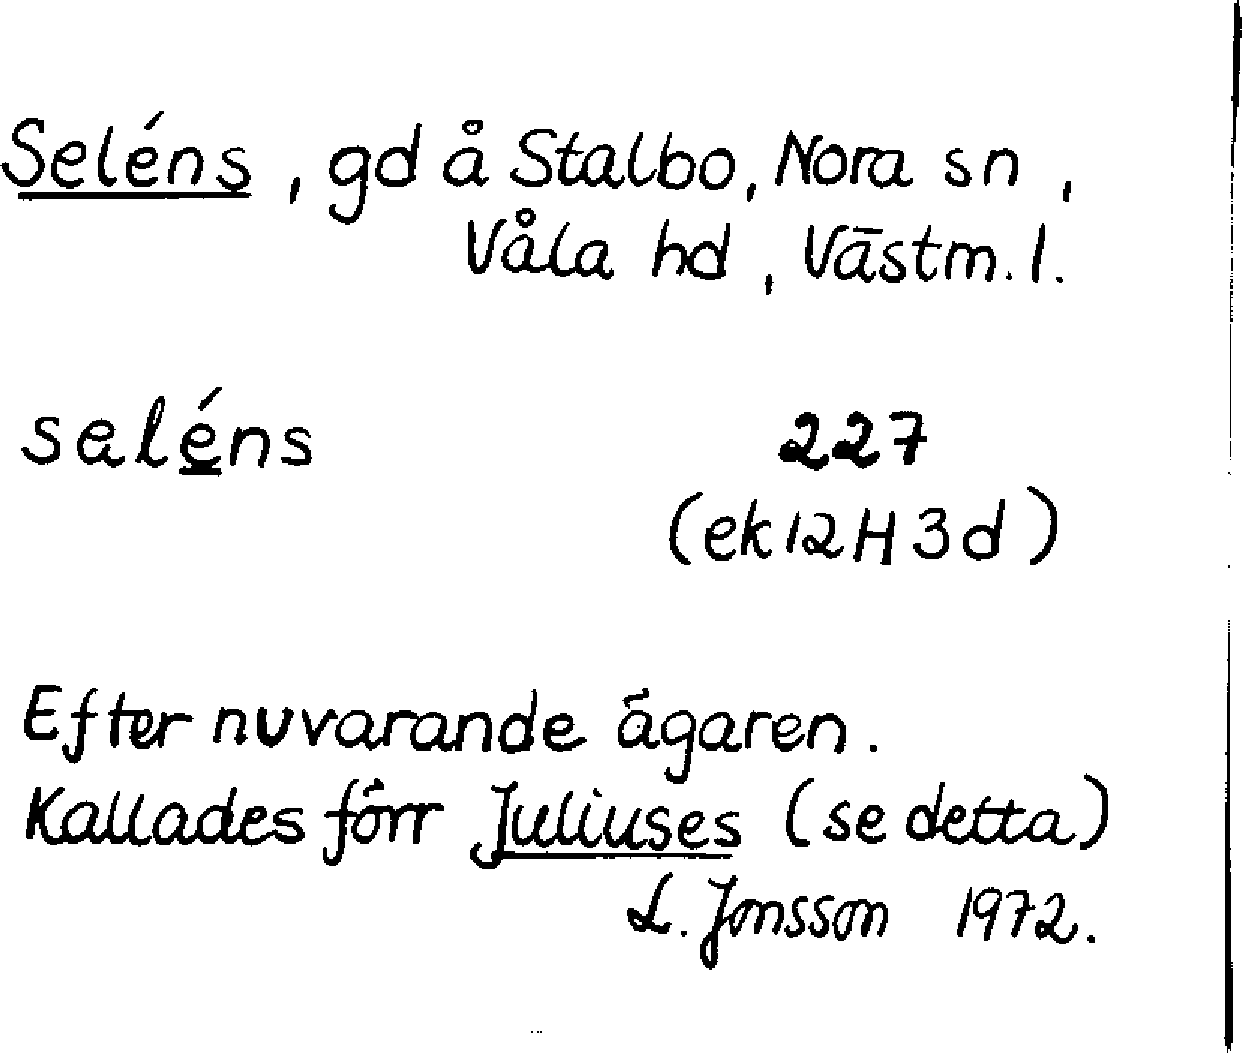 Seléns, gd å Stalbo, Nora sn,
Våla hd, Västm. l.
seléns 227
(ek 12H 3d)
Efter nuvarande ägaren.
Kallades förr Juliuses (se detta)
L. Jonsson 1972.